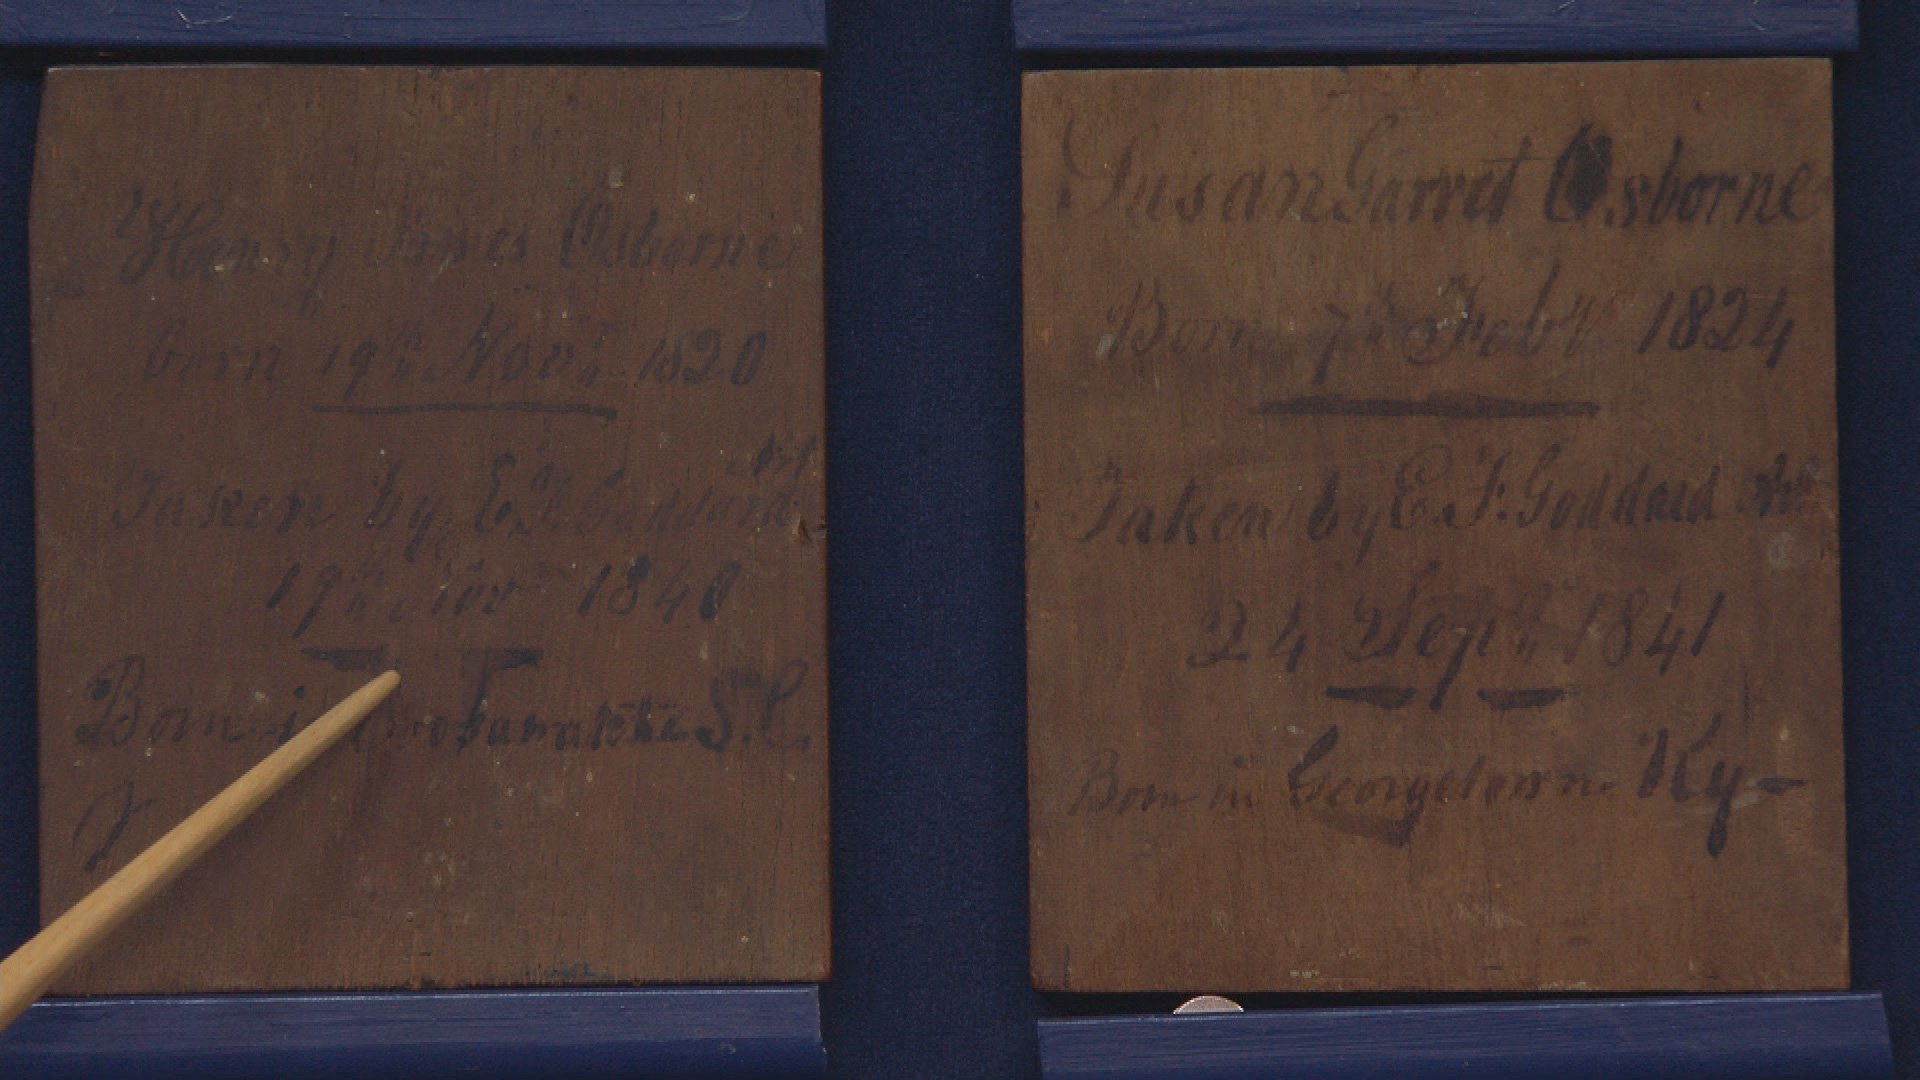 Henry James Osborne
born 19th Novr 1820
Taken by E. F. Goddard
19th Novr 1840
Born in S.C.
Susan Garret Osborne
Born 7th Feby 1824
Taken by E. F. Goddard
24 Sept 1841
Born in Georgetown Ky-